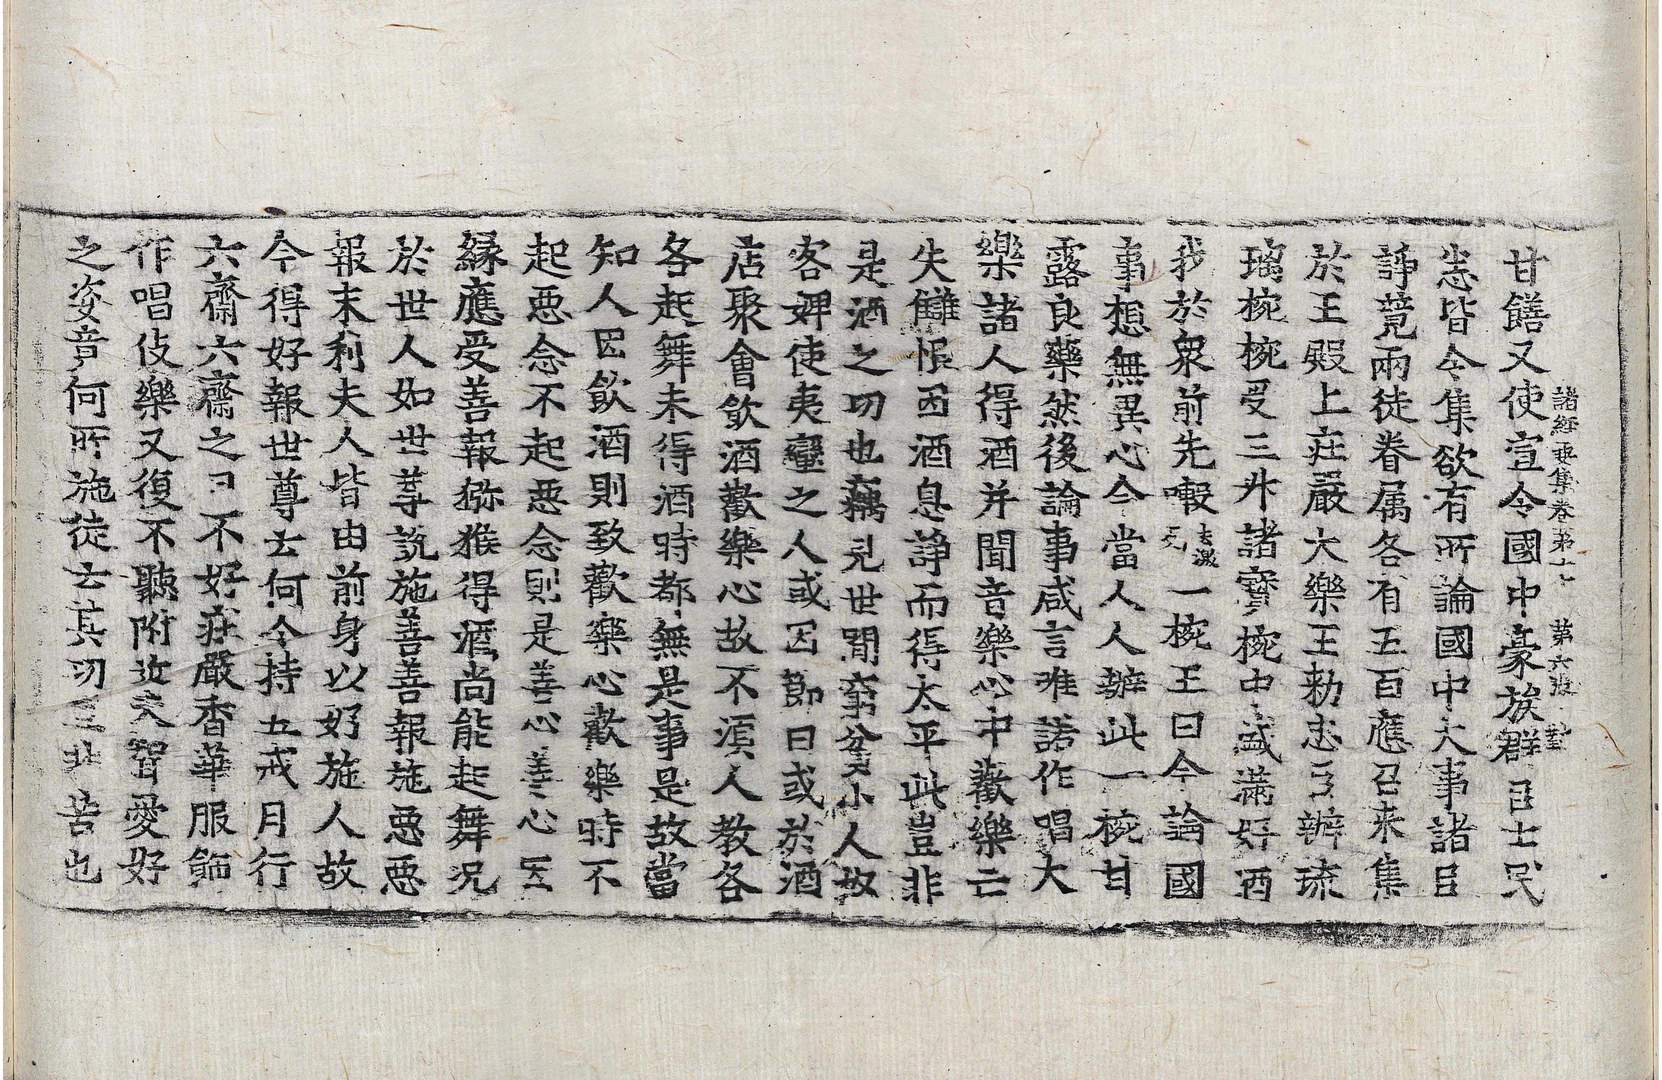 甘饍又使宣令國中豪族群臣士民
悉皆令集欲有所論國中大事諸臣
諍競兩徒眷属各有五百應召来集
於王殿上莊嚴大樂王勑忠臣辦琉
璃椀椀受三升諸寶椀中盛滿好酒
我於衆前先嘏一椀王曰今論國
事想無異心今當人人辦此一椀甘
露良藥然後論事咸言唯諾作唱大
樂諸人得酒并聞音樂心中歡樂亡
失讎恨因酒息諍而得太平此豈非
是酒之功也竊見世間窮貧小人奴
客婢使夷蠻之人或因節日或於酒
店聚會飲酒歡樂心故不湏人教各
各起舞未得酒時都無是事是故當
知人因飲酒則致歡樂心歡樂時不
起惡念不起惡念則是善心善心因
緣應受善報猕猴得酒尚能起舞况
於世人如世尊說施善善報施惡惡
報末利夫人皆由前身以好施人故
今得好報世尊云何令持五戒月行
六齋六齋之日不好莊嚴香華服飾
作唱伎樂又復不聽附近夫婿愛好
之姿竟何所施徒云其功
苦也
諸經要集卷第十七 第六張